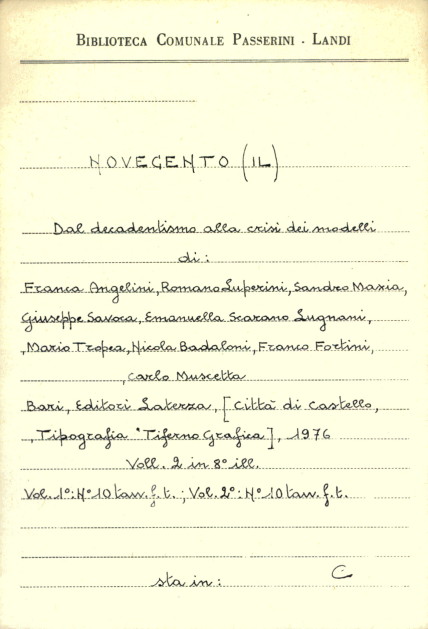 BIBLIOTECA COMUNALE PASSERINI - LANDI
NOVECENTO (IL)
Dal decadentismo alla crisi dei modelli
di:
Franca Angelini, Romano Luperini, Sandro Maxia,
Giuseppe Savoca, Emanuella Scarano Lugnani,
, Mario Tropea, Nicola Badaloni, Franco Fortini,
, Carlo Muscetta
Bari, Editori Laterza, [Città di Castello,
, Tipografia "Tiferno Grafica], 1976
Voll. 2 in 8° ill.
Vol. 1°: N° 10 tavv. f. t. ; Vol. 2°: N° 10 tavv. f. t.
sta in: C